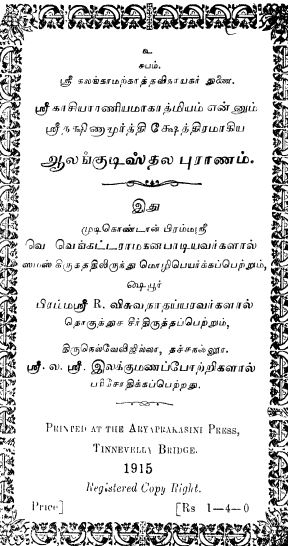 உ
சுபம்.
ஸ்ரீ கலங்காமற்காத்தவிநாயகர் துணை.
ஸ்ரீ காசியாரணியமாகாத்மியம் என்னும்
ஸ்ரீ தக்ஷிணாமூர்த்தி க்ஷேத்திரமாகிய
ஆலங்குடிஸ்தல புராணம்.
இது
முடிகொண்டான் பிரம்மஸ்ரீ
வெ வெங்கட்டராமகனபாடியவர்களால்
மொழிபெயர்க்கப்பெற்றும்,
பிரம்மஸ்ரீ R. விசுவநாதய்யரவர்களால்
தொகுத்துச் சீர்திருத்தப்பெற்றும்,
திருநெல்வேலிஜில்லா, தச்சநல்லூர்.
ஸ்ரீ. ல. ஸ்ரீ. இலக்குமணப்போற்றிகளால்
பரிசோதிக்கப்பெற்றது.
PRINTED AT THE ARYAPRAKASINI PRESS,
TINNEVELLY BRIDGE.
1915
Registered Copy Right.
Price] [Rs 1—4—0